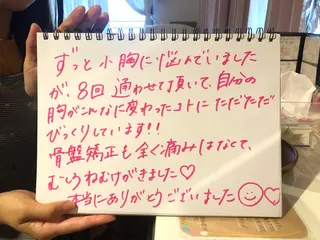 ずっと小胸に悩んでいました
が、8回通わせて頂いて、自分の
胸がこんなに変わったコトにただただ
びっくりしています!!
骨盤矯正も全く痛みはなくて、
むしろねむけがきました♡
本当にありがとうございました☺♡